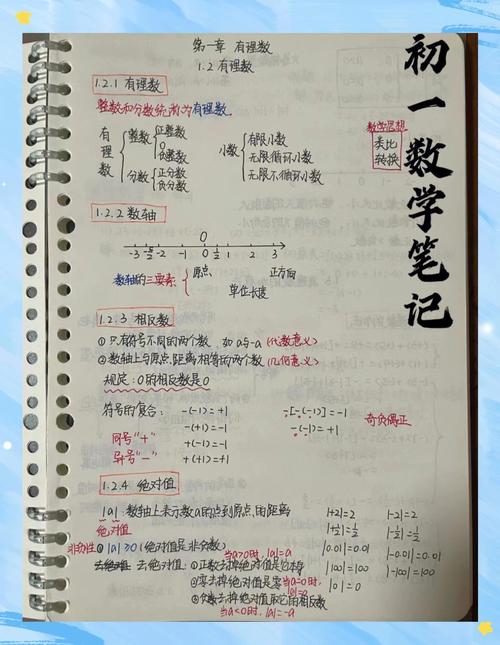 初一数学笔记
第一章 有理数
1.2 有理数
1.2.1 有理数
整数和分数统称为有理数.
数学思想
类比
转换
有理数
整数
正整数
0
负整数
分数
正分数
负分数
小数
有限小数
无限循环小数
无限不循环小数
1.2.2 数轴
0
-3 -5/2 -2 -1 0 1/2 1 2 3
数轴的三要素:
原点
正方向
单位长度
1.2.3 相反数
① 只有符号不同的两个数 如a与-a (代数意义)
② 数轴上与原点距离相等的两个数 (几何意义)
规定:0的相反数是0
符号的复合: -(-1)=+1
-(+1)=-1
+(-1)=-1
+(+1)=+1
同号"+"
异号"-"
-[-(-1)]=-1
-(-1)=+1
奇负偶正
1.2.4 绝对值
|a|:数轴上表示数a的点到原点的距离
绝对值
非负性 ①|a|≥0(绝对值是非负数)
去绝对值:①正数去掉绝对值是它本身
当a>0时,|a|=a
②零去掉绝对值是零
当a=0时,
|a|=0
③负数去掉绝对值取它的相反数
当a<0时,|a|=-a
|+2|=2 |-2|=2
|+1/2|=1/2 |-1/2|=1/2
|0.01|=0.01 |-0.01|=0.01
|100|=100 |-100|=100
|0|=0